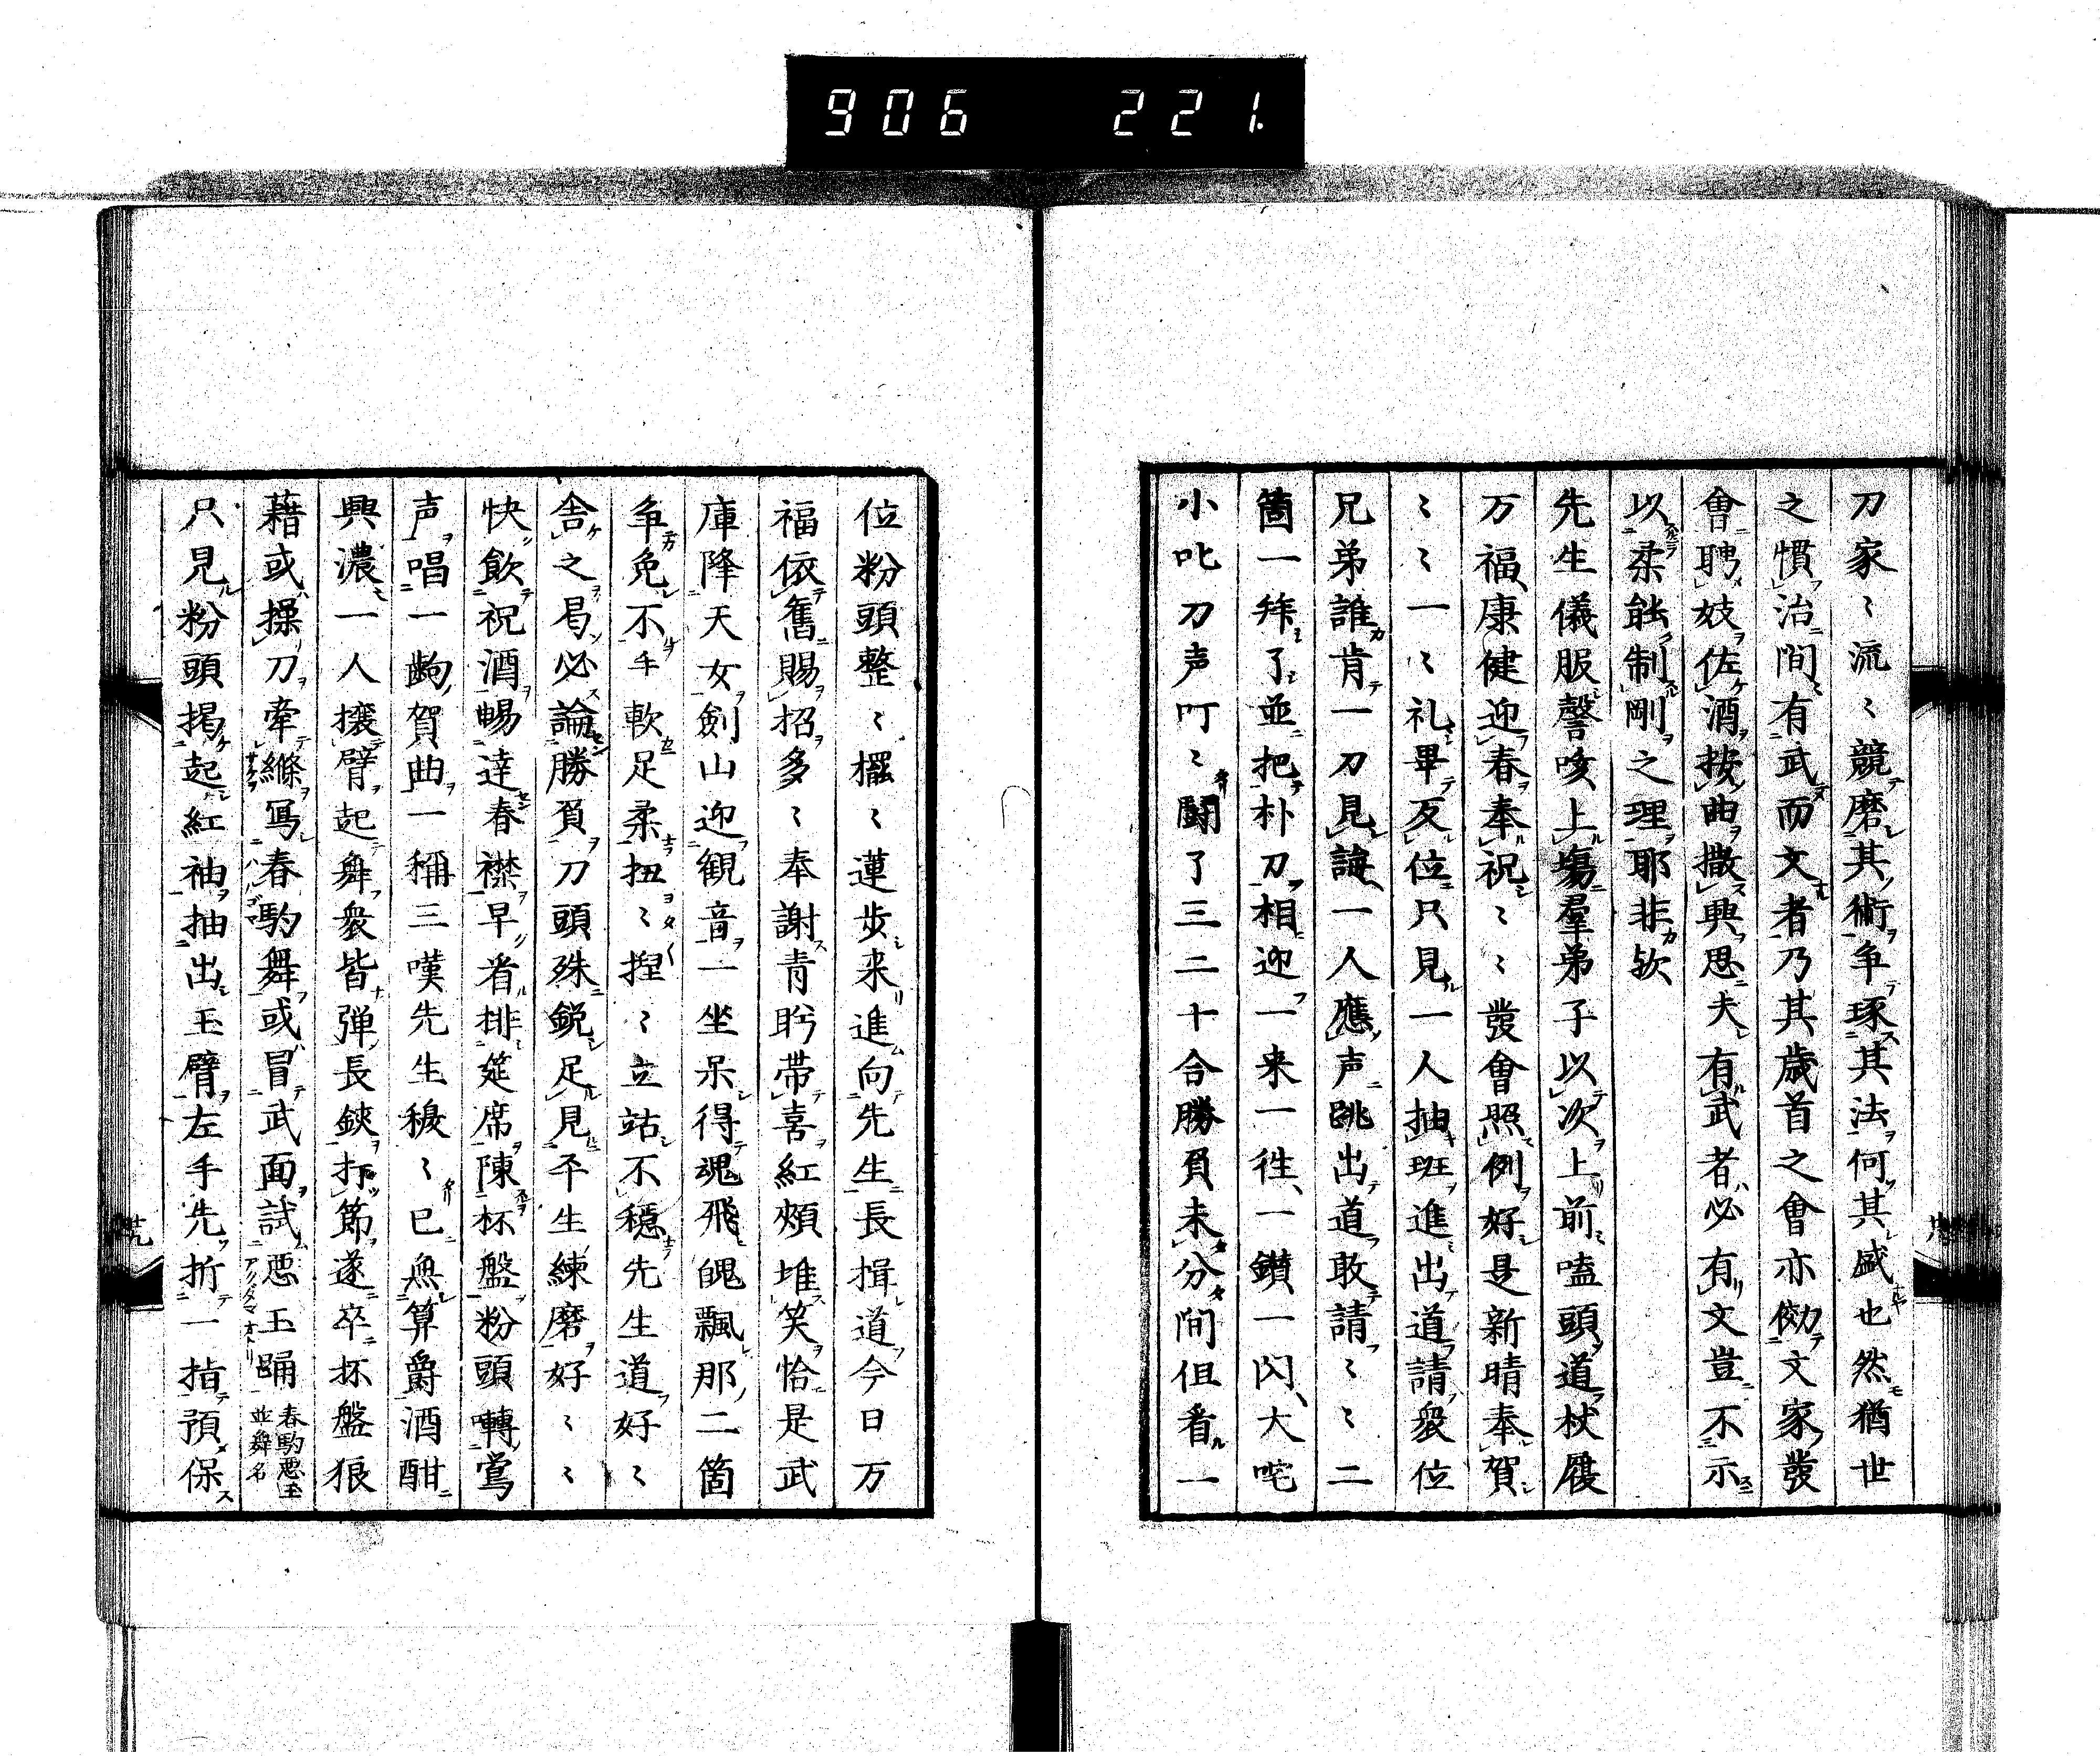 906 221.
刀家〻流〻競磨其術争琢其法何其盛也然猶世
之慣治間有武而文者乃其歳首之會亦傚文家發
會聘妓佐酒按曲撒興思夫有武者必有文豈不示
以柔能制剛之理耶非欤
先生儀服謦咳上塲羣弟子以次上前嗑頭道杖履
万福康健迎春奉祝〻〻發會照例好是新晴奉賀
〻〻一〻礼畢反位只見一人抽班進出道請衆位
兄弟誰肯一刀見誨一人應声跳出道敢請〻〻二
箇一拜了並把朴刀相迎一来一徃一鑚一閃大咤
小叱刀声叮〻闘了三二十合勝負未分間但看一
位粉頭整〻擺〻蓮歩来進向先生長揖道今日万
福依舊賜招多〻奉謝青眄帯喜紅頰堆笑恰是武
庫降天女劍山迎観音一坐呆得魂飛魄飄那二箇
争免不手軟足柔扭〻捏〻立站不穏先生道好〻
舎之曷必論勝負刀頭殊鋭足見平生練磨好〻〻
快飲祝酒暢達春襟早看排筵席陳杯盤粉頭囀鴬
声唱一齣賀曲一稱三嘆先生稷〻已無算爵酒酣
興濃一人攘臂起舞衆皆弾長鋏打節遂卒杯盤狼
藉或操刀牽縧冩春駒舞或冒武面試悪玉踊春駒悪玉並舞名
只見粉頭掲起紅袖抽出玉臂左手先折一指預保
十九